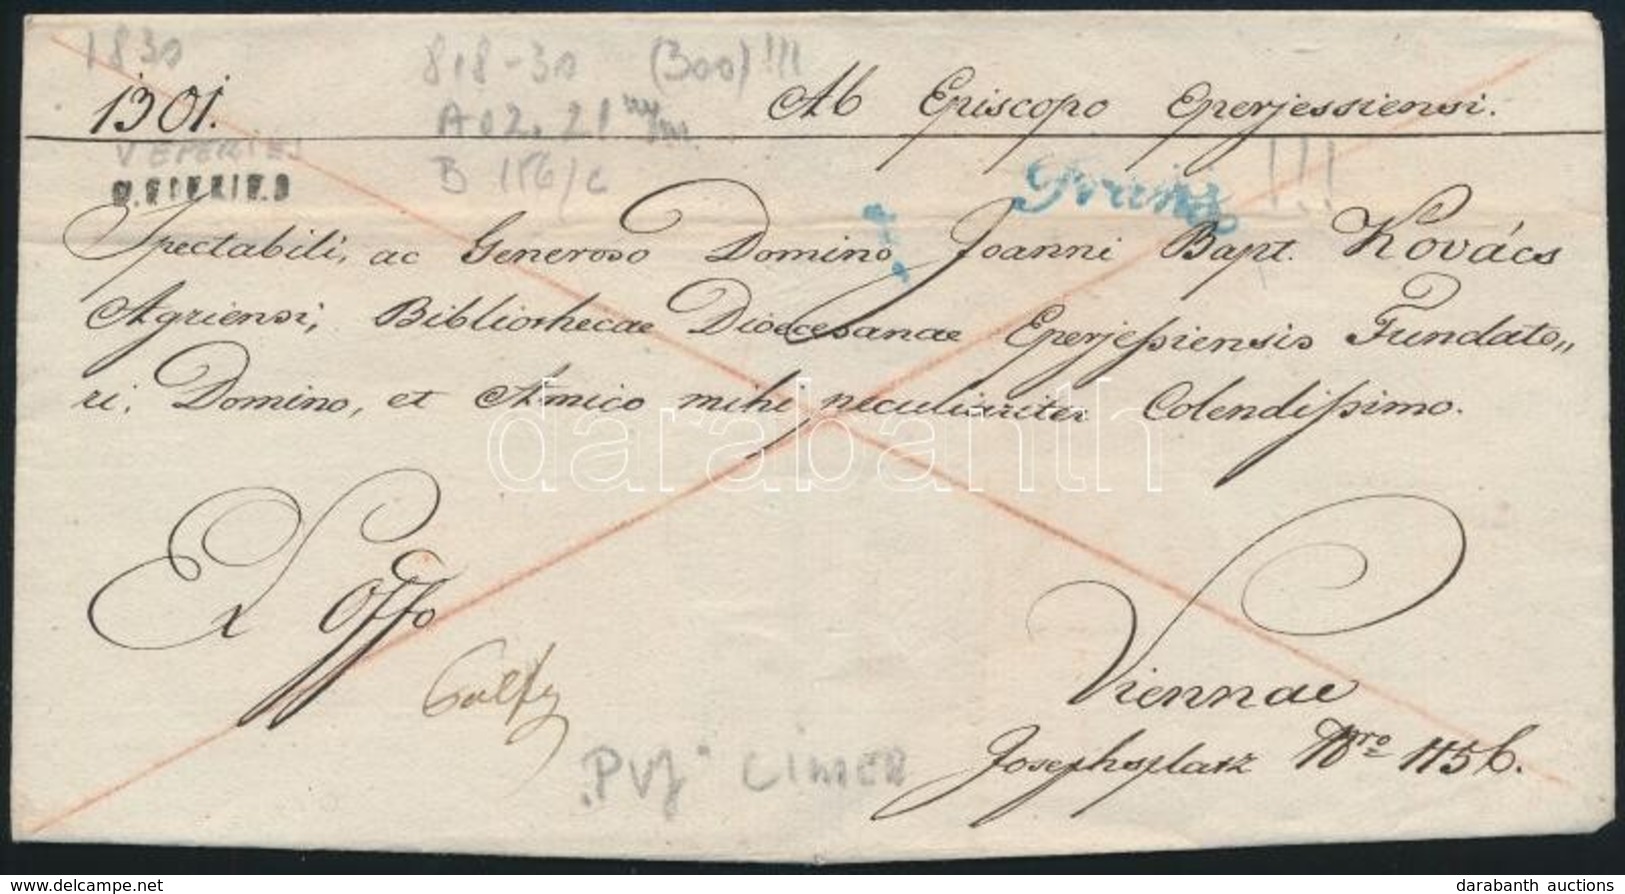 1830 818-30 (300) !!!
1301. Ab Episcopo Eperjessiensi.
A02. 21
V EPERIES
B 186/c
V.EPERIES
Franco !!!
Spectabili, ac Generoso Domino Joanni Bapt. Kovács
Agriensi, Bibliothecae Dioecesanae Eperjessiensis Fundato„
ri, Domino, et Amico mihi peculiariter Colendissimo.
darabanth
Ex Offo
Viennae
Josephsplatz Nro 1156.
CIMER
darabanth auctions